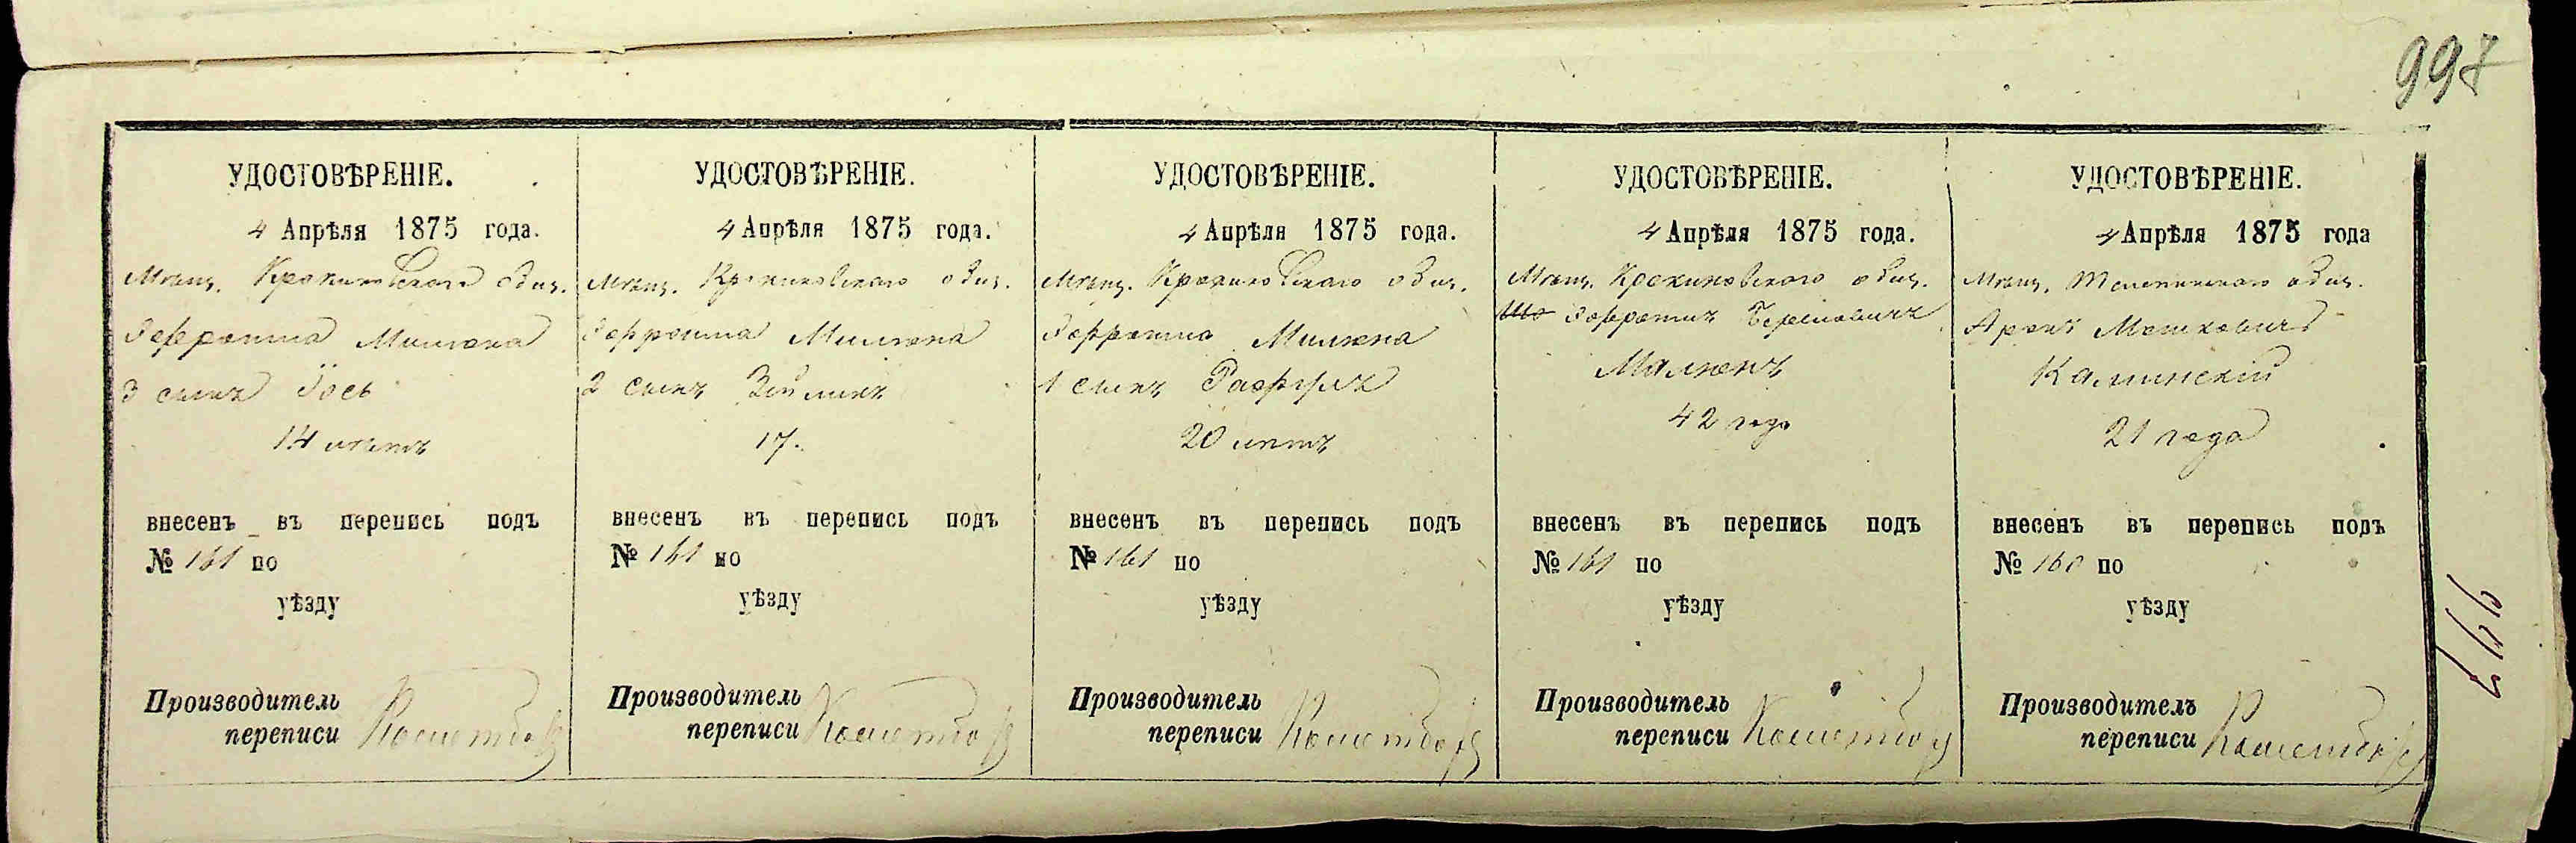 997
УДОСТОВѢРЕНІЕ.
4 Апрѣля 1875 года.
Мѣщ. Крокиновскаго общ.
Мишкена
3 сынъ Іось
14 лѣтъ
внесенъ въ перепись подъ
№ 161 по
уѣзду
Производитель
переписи
УДОСТОВѢРЕНІЕ.
4 Апрѣля 1875 года.
Мѣщ. Крокиновскаго общ.
Мишкена
2 сынъ Зѣлликъ
17.
внесенъ въ перепись подъ
№ 161 по
уѣзду
Производитель
переписи
УДОСТОВѢРЕНІЕ.
4 Апрѣля 1875 года.
Мѣщ. Крокиновскаго общ.
1 сынъ
20 лѣтъ
внесенъ въ перепись подъ
№ 161 по
уѣзду
Производитель
переписи
УДОСТОВѢРЕНІЕ.
4 Апрѣля 1875 года.
Мѣщ. Крокиновскаго общ.
42 года
внесенъ въ перепись подъ
№ 161 по
уѣзду
Производитель
переписи
УДОСТОВѢРЕНІЕ.
4 Апрѣля 1875 года
Мѣщ. общ.
Аронъ Мошковичъ
Калинскій
21 года
внесенъ въ перепись подъ
№ 160 по
уѣзду
Производитель
переписи
997